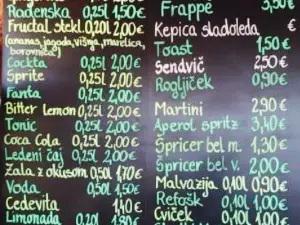 Radenska 0,25l 1,50€
Fructal stekl. 0,20l 2,00€
(ananas, jagoda, višnja, marelica,
borovnica)
Cockta 0,25l 2,00€
Sprite 0,25l 2,00€
Fanta 0,25l 2,00€
Bitter Lemon 0,25l 2,00€
Tonic 0,25l 2,00€
Coca Cola 0,25l 2,00€
Ledeni čaj 0,25l 2,00€
Zala z okusom 0,50l 1,70€
Voda 0,50l 1,50€
Cedevita 1,40€
Limonada 0,20l 1,80€
Frappé 3,50€
Kepica sladoleda €
Toast 1,50€
Sendvič 2,50€
Rogljiček 0,90€
Martini 2,90€
Aperol spritz 3,40€
Špricer bel m. 1,30€
Špricer bel v. 2,00€
Malvazija 0,10l 0,90€
Refošk 0,10l 1,00€
Cviček 0,10l 1,00€